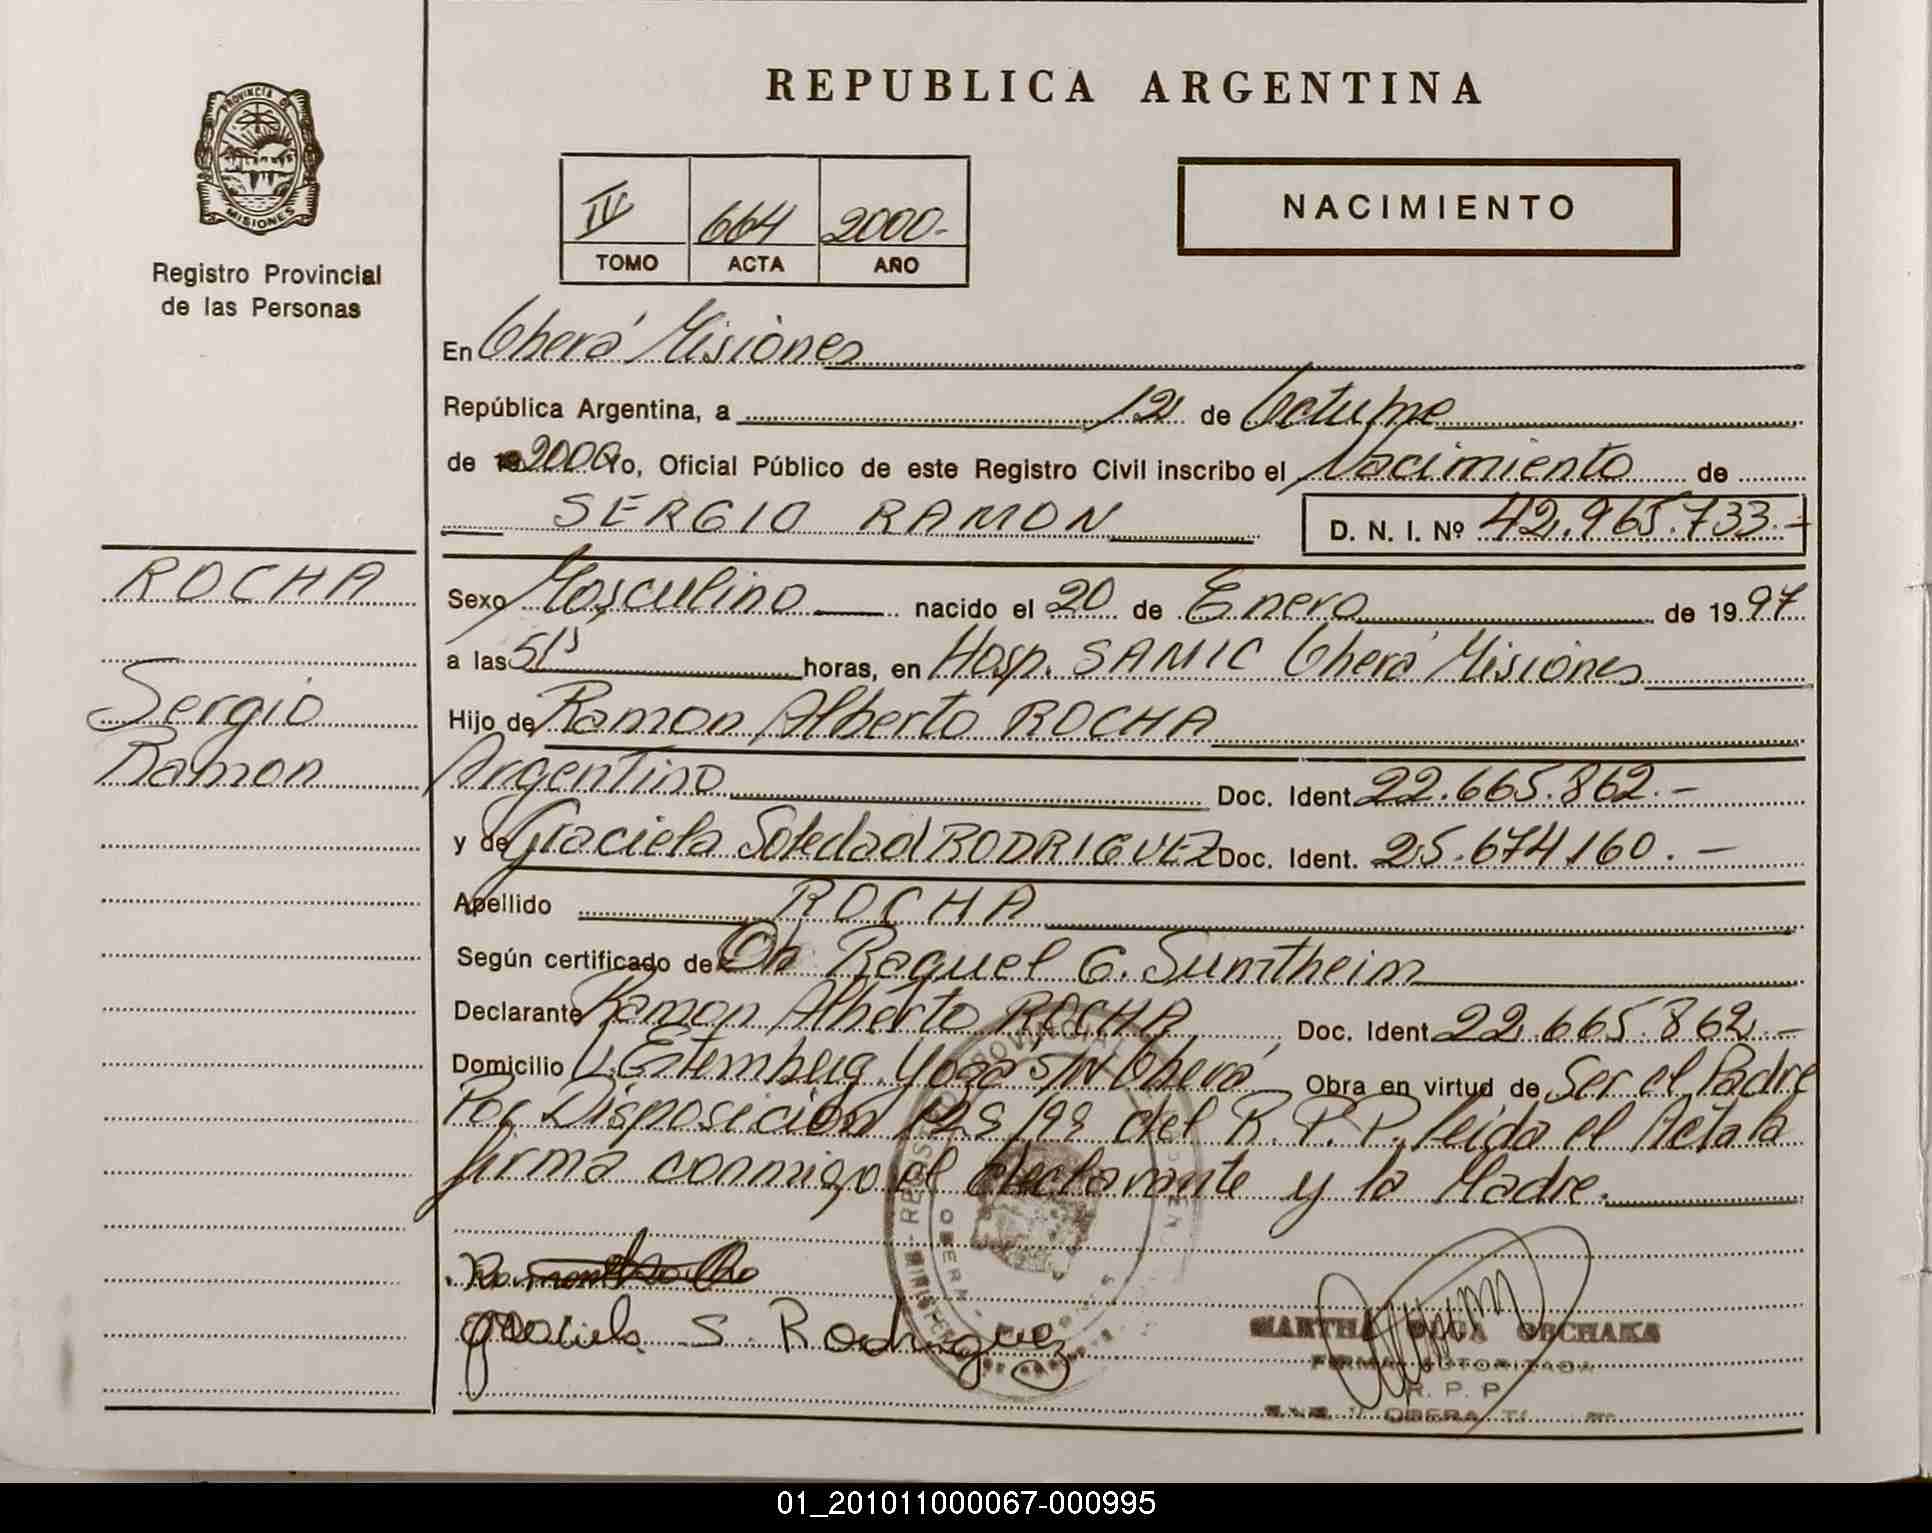 REPUBLICA ARGENTINA
PROVINCIA DE
MISIONES
Registro Provincial
de las Personas
IV 664 2000-
TOMO ACTA AÑO
NACIMIENTO
En Oberá Misiones
República Argentina, a 12 de Octubre
de 2000 Yo, Oficial Público de este Registro Civil inscribo el Nacimiento de
SERGIO RAMON D. N. I. Nº 42.965.733.-
ROCHA
Sergio
Ramon
Sexo Masculino nacido el 20 de Enero de 1997
a las horas, en Hosp. SAMIC Oberá Misiones
Hijo de Ramon Alberto ROCHA
Argentino Doc. Ident. 22.665.862.-
y de Graciela Soledad RODRIGUEZ Doc. Ident. 25.674.160.-
Apellido ROCHA
Según certificado de Raquel G. Sumtheim
Declarante Ramon Alberto ROCHA Doc. Ident. 22.665.862.-
Domicilio S/N Oberá Obra en virtud de Ser el Padre
Por Disposición del R. P. P. leida el Acta la
firma conmigo el declarante y la Madre.
Graciela S. Rodriguez
MARTHA OLGA
FIRMA AUTORIZADA
R. P. P.
OBERA
01_201011000067-000995